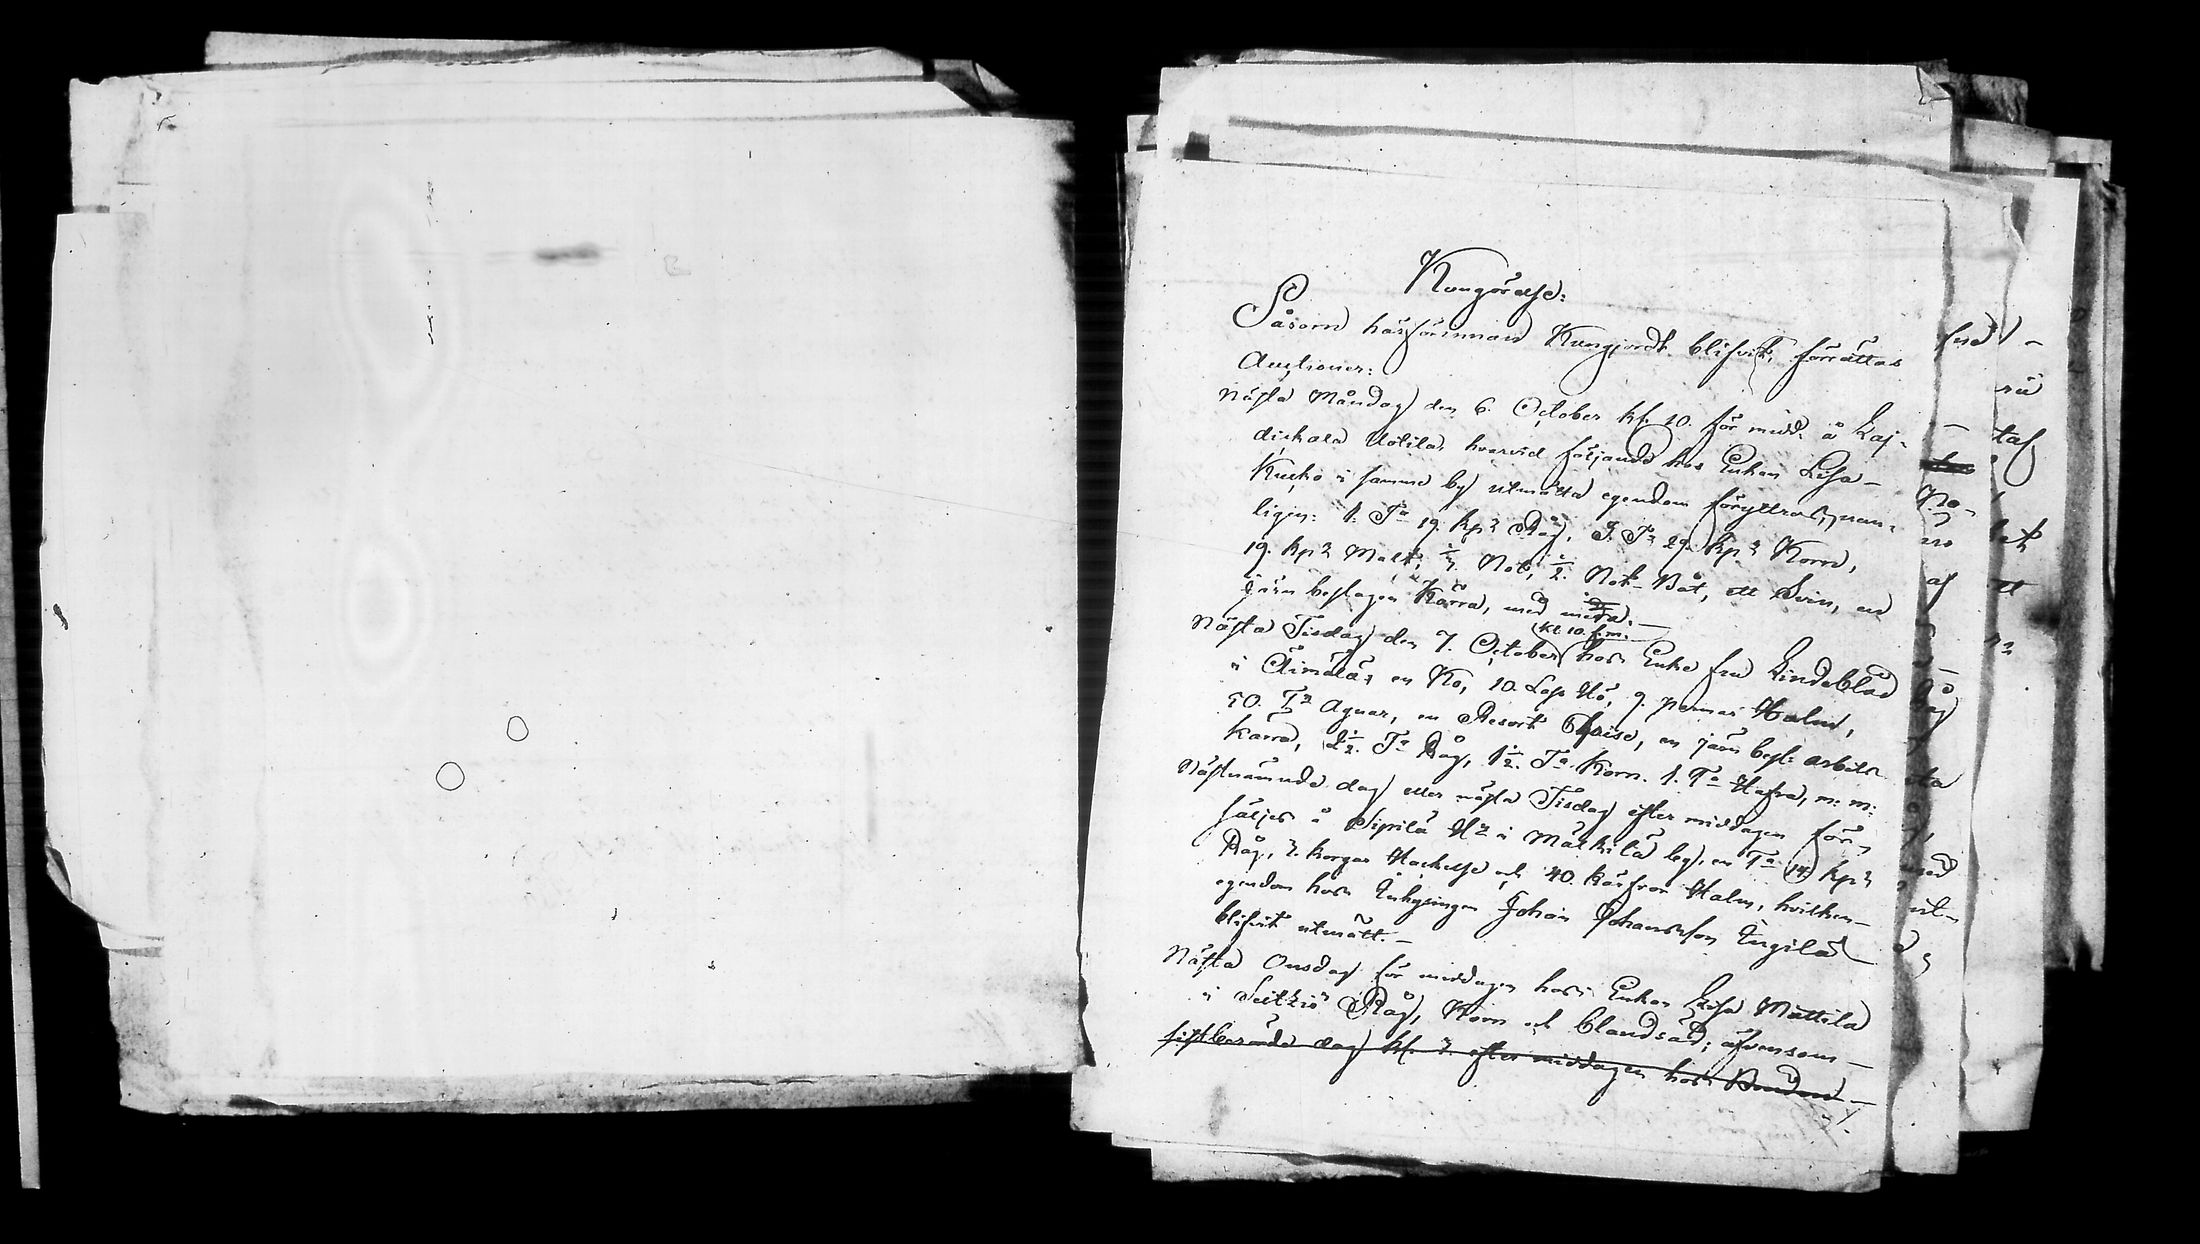 Kungörelse:
Såsom härförinnan Kungjordt blifvit, förrättas
Auctioner:
Nästa Måndag den 6. October kl. 10. för midd. å Laj-
diskala Uotila, hvarvid följande hos Enkan Lisa
Kucko i samme by utmätta egendom föryttras, nem-
ligen: 1. Ta 19. kpr Råg, 3. Tr 29. kpr Korn,
19. kpr Malt, Not, 1/2. Not-Båt, ett Svin, en
järn beslagen Kärra, med mera.
Nästa Tisdag den 7. October kl 10. f.m. hos Enke fru Lindeblad
i Äimälä, en Ko, 10. Lass Hö, 9. Parmar Halm,
50. Tr Agnar, en Resort Chaise, en järn besl: arbets
kärra, 2 1/2. Ta Råg, 1 1/2. Ta Korn. 1. Ta Hafra, m: m:
Nästnämnde dag eller nästa Tisdag efter middagen för-
säljes å Sipilä Hn i Mälkilä by, en Ta 14 kpr
Råg, 3. korgar Hackelse och 40. kärfvar Halm, hvilken
egendom hos Inhysingen Johan Johansson Ingila
blifvit utmätt.
Nästa Onsdag för middagen hos Enkan Lisa Mattila
i Seitziö Råg, Korn och blandsäd; äfvensom
sistberörde dag kl. 3. efter middagen hos Bonden